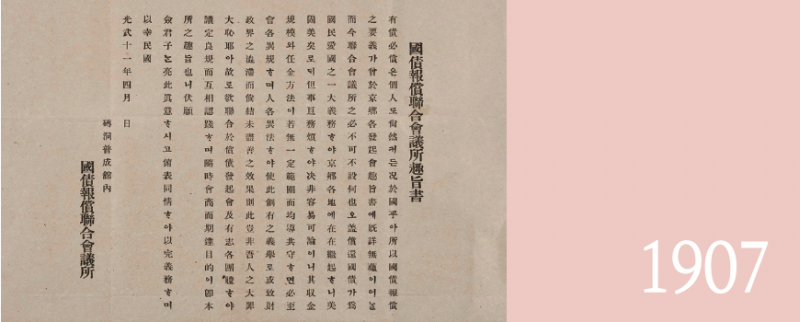 國債報償聯合會議所趣旨書
有債必償은個人도尙然커든况於國乎아所以國債報償
之要義가曾於京鄕各發起會趣旨書에旣詳無蘊이어늘
而今聯合會議所之必不可不設何也오盖償還國債가爲
國民愛國之一大義務ᄒᆞ야京鄕各地에在在起ᄒᆞ니美
固美矣로ᄃᆡ但事巨務煩ᄒᆞ야决非容易可論이니其收金
規模와任金方法이若無一定範圍而均準共守ᄒᆞ면必至
會各異規ᄒᆞ며人各異法ᄒᆞ야使此創有之義擧로或致財
政界之滯而結未盡善之效果則此豈非吾人之大罪
大恥耶아故로欲聯合於償債發起會及有志各團軆ᄒᆞ야
議定良規而互相認ᄒᆞ며隨時會商而期達目的이卽本
所之趣旨也니伏願
僉君子ᄂᆞᆫ亮此眞意ᄒᆞ시고俯表同情ᄒᆞ야以完義務ᄒᆞ며
以幸民國
光武十一年四月 日
磚洞普成館內
國債報償聯合會議所
1907